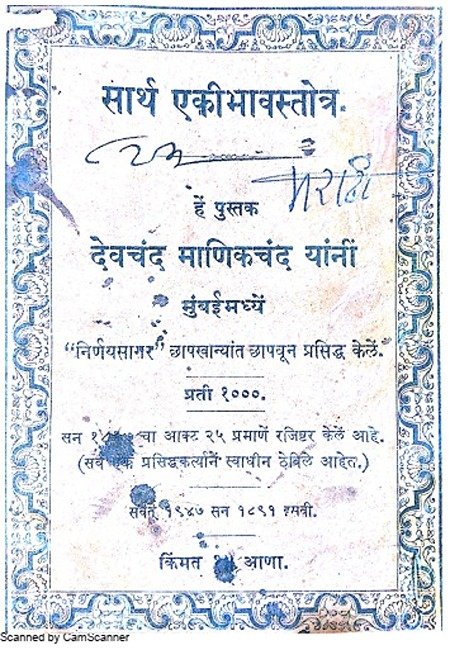 सार्थ एकीभावस्तोत्र.
मराठी
हें पुस्तक
देवचंद माणिकचंद यांनीं
मुंबईमध्यें
“निर्णयसागर” छापखान्यांत छापवून प्रसिद्ध केलें.
प्रती १०००.
सन चा आक्ट २५ प्रमाणें रजिष्टर केलें आहे.
(सर्व हक्क प्रसिद्धकर्त्यानें स्वाधीन ठेविले आहेत.)
संवत् १९४७ सन १८९१ इसवी.
किंमत आणा.
Scanned by CamScanner